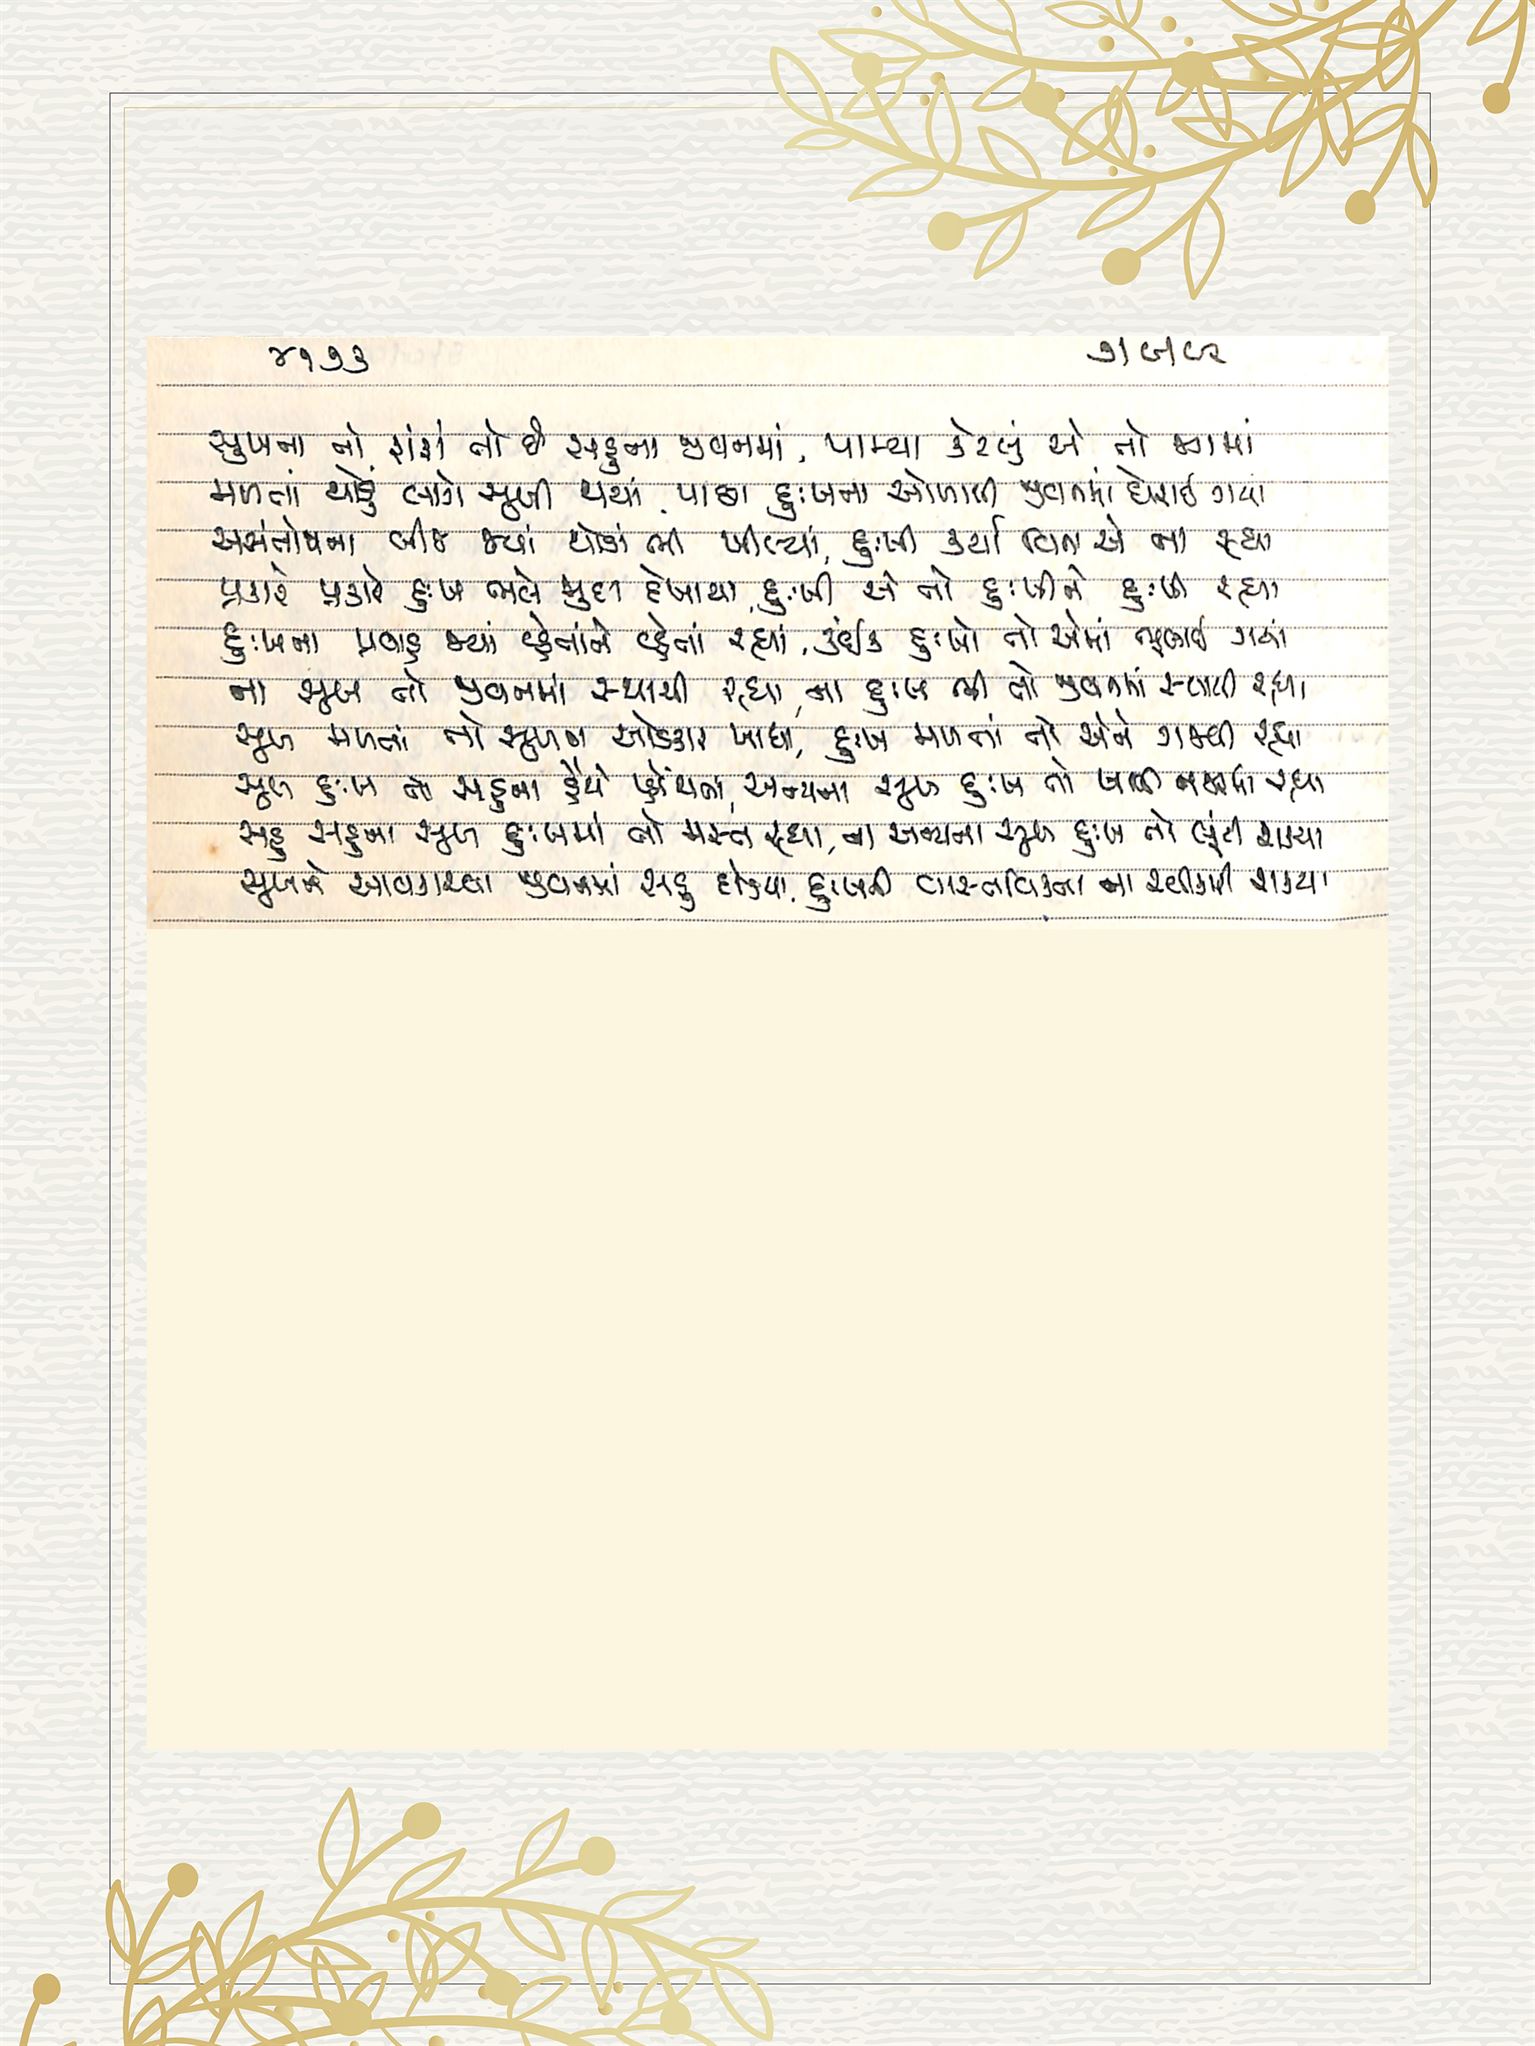 ૪૧૭૩ ૭/૯/૯૨
સુખના તો ફાંફાં તો છે સહુના જીવનમાં, પામ્યા કેટલું એ તો જાગમાં
મળતાં થોડું લાગે સુખી થયા, પાછા દુઃખના ઓળામાં જીવનમાં ઘેરાઈ ગયા
અસંતોષના બીજ જ્યાં થોડાં ભી ખીલ્યાં, દુઃખી કર્યા વિના એ ના રહ્યા
પ્રકારે પ્રકારે દુઃખ ભલે જુદા દેખાયા, દુઃખી એ તો દુઃખીને દુઃખી રહ્યા
દુઃખના પ્રવાહ જ્યાં વ્હેતાંને વ્હેતાં રહ્યાં, કંઈક દુઃખો તો એમાં ભુલાઈ ગયાં
ના સુખ તો જીવનમાં સ્થાયી રહ્યા, ના દુઃખ ભી તો જીવનમાં સ્થાયી રહ્યા
સુખ મળતાં તો સુખના ઓડકાર ખાધા, દુઃખ મળતાં તો એને રહ્યા
સુખ દુઃખ તો સહુના હૈયે પ્હોંચતા, અન્યના સુખ દુઃખ તો ખાલી નજરમાં રહ્યા
સહુ સહુના સુખ દુઃખમાં તો મસ્ત રહ્યા, ના અન્યના સુખ દુઃખ તો લૂંટી શક્યા
સુખને આવકારવા જીવનમાં સહુ દોડયા, દુઃખની વાસ્તવિકતા ના સ્વીકારી શક્યા